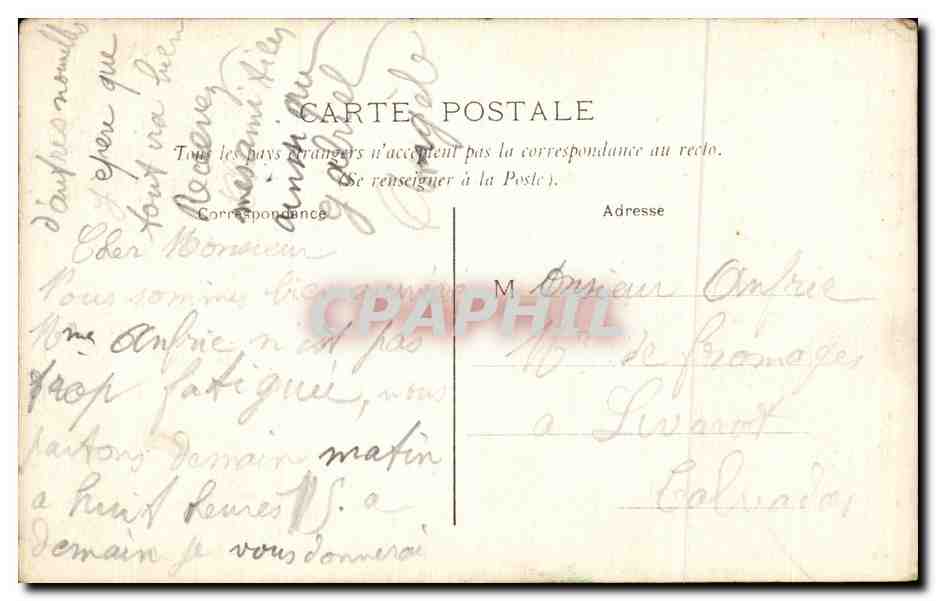 CARTE POSTALE
Tous les pays étrangers n'acceptent pas la correspondance au recto.
(Se renseigner à la Poste).
Correspondance
Adresse
Cher Monsieur
Nous sommes bien
Mme Anfrie n'est pas
trop fatiguée, nous
partons demain matin
a huit heures 1/2. a
demain je vous donnerai
d'autres nouvelles
j'espere que
tout ira bien
Recevez
mes amities
ainsi qu
Gabriel
Angele
M onsieur Anfrie
Md de fromages
a Livarot
Calvados
CPAPHIL